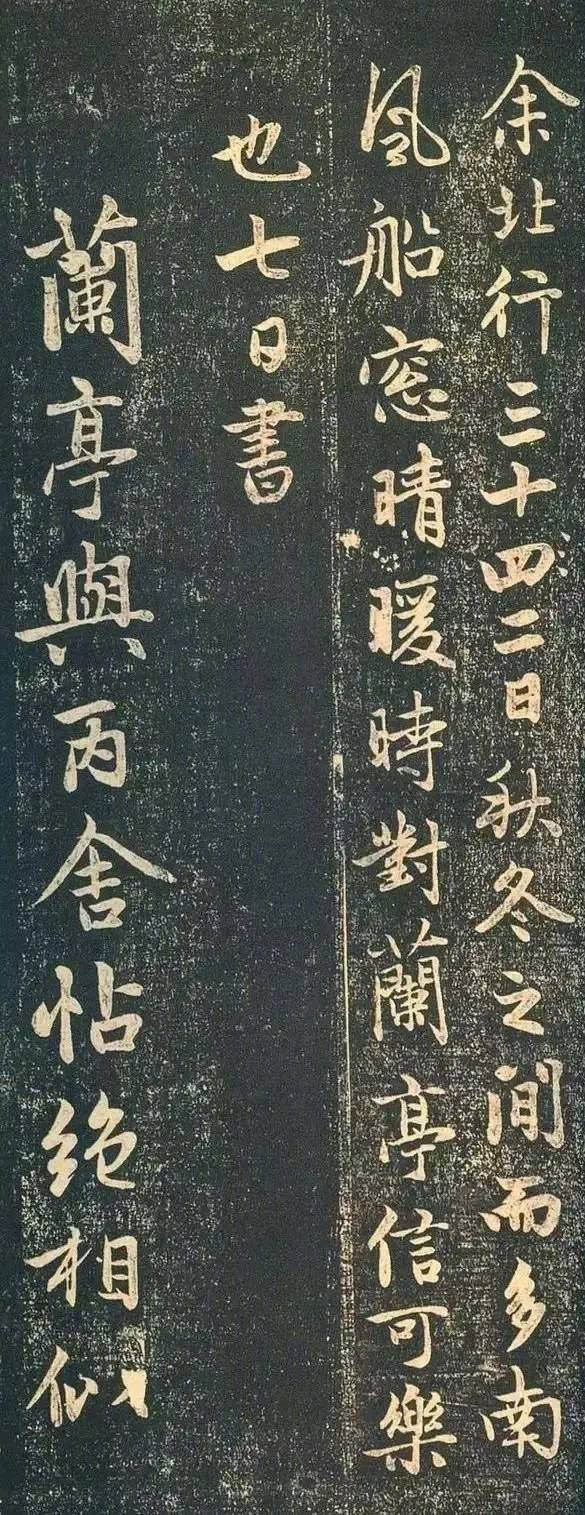 余北行三十四二日秋冬之間而多南
風船窓晴暖時對蘭亭信可樂
也七日書
蘭亭與丙舍帖絶相似